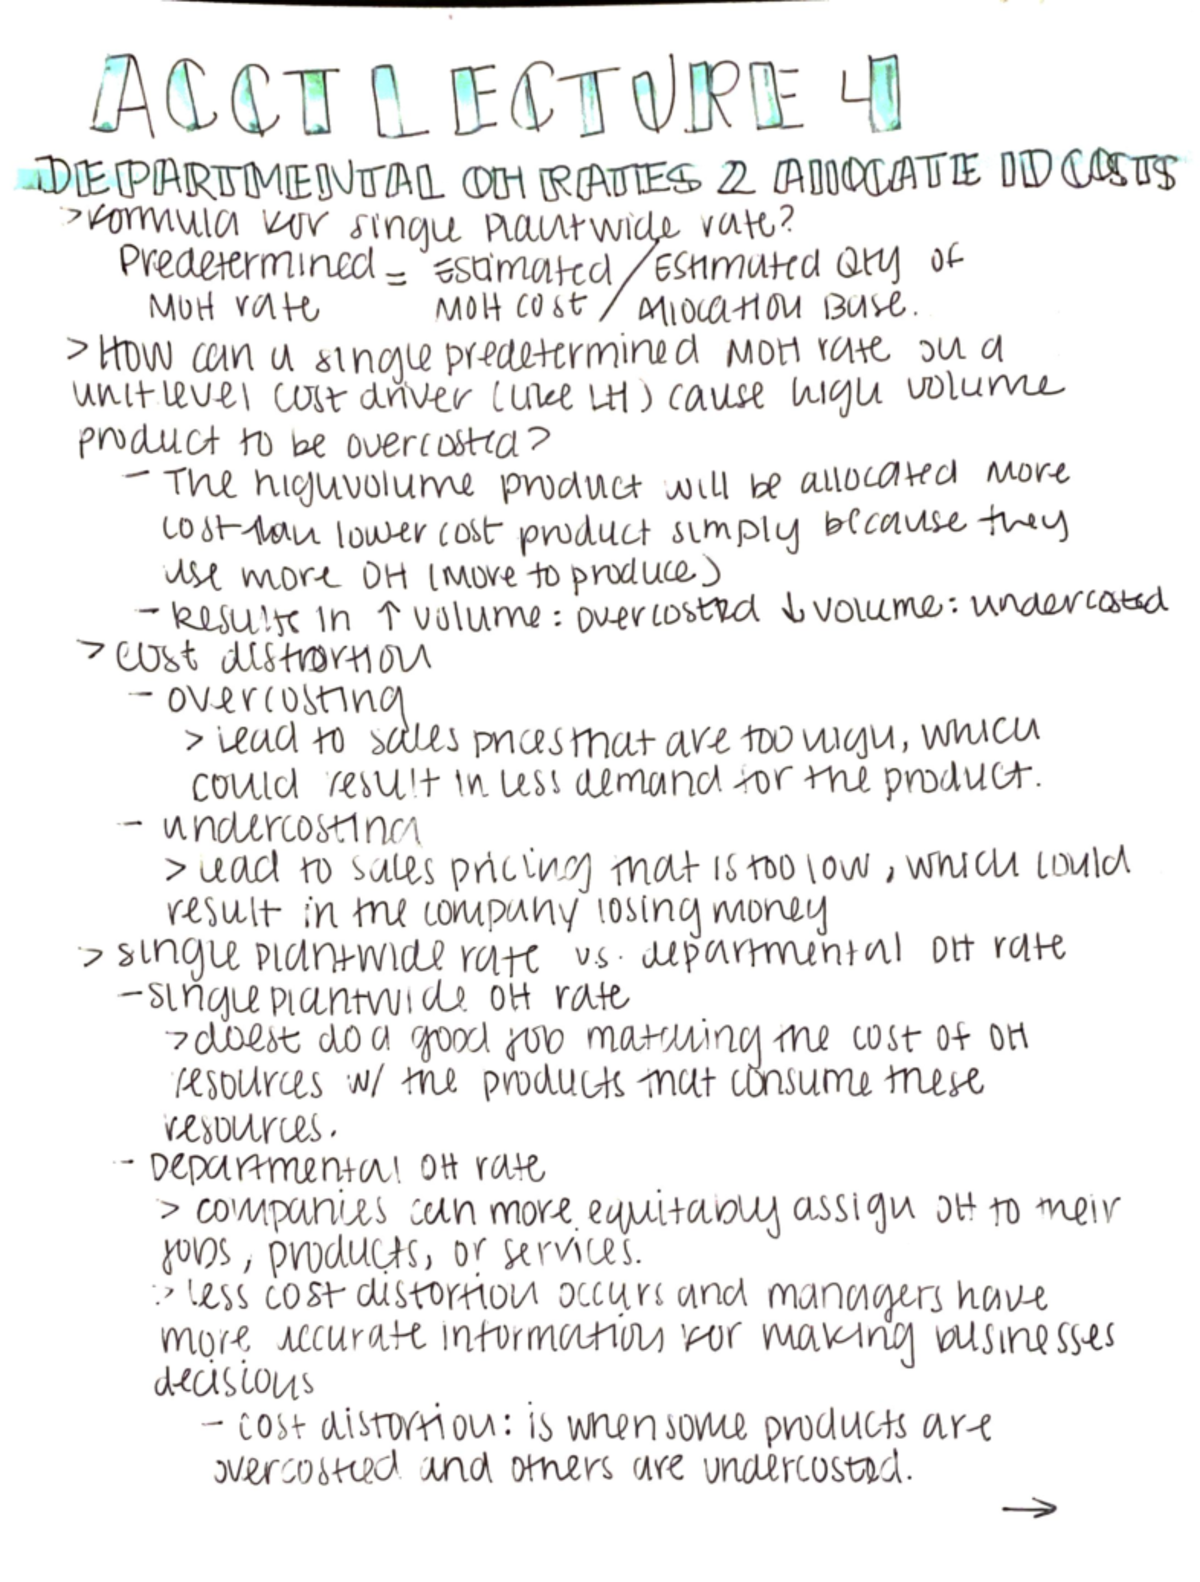 ACCT LECTURE 4
DEPARTMENTAL OH RATES 2 ALLOCATE ID COSTS
> Formula for single plantwide rate?
Predetermined = Estimated / Estimated Qty of
MOH rate MOH cost / Allocation Base.
> How can a single predetermined MOH rate on a
unit level cost driver (like LH) cause high volume
product to be overcosted?
- The high volume product will be allocated more
cost than lower cost product simply because they
use more OH (more to produce)
- Results in ↑ volume: overcosted ↓ volume: undercosted
> cost distortion
- overcosting
> lead to sales prices that are too high, which
could result in less demand for the product.
- undercosting
> lead to sales pricing that is too low, which could
result in the company losing money
> single plantwide rate vs. departmental OH rate
- single plantwide OH rate
> doest do a good job matching the cost of OH
resources w/ the products that consume these
resources.
- Departmental OH rate
> companies can more equitably assign OH to their
jobs, products, or services.
> less cost distortion occurs and managers have
more accurate information for making businesses
decisions
- cost distortion: is when some products are
overcosted and others are undercosted.
→